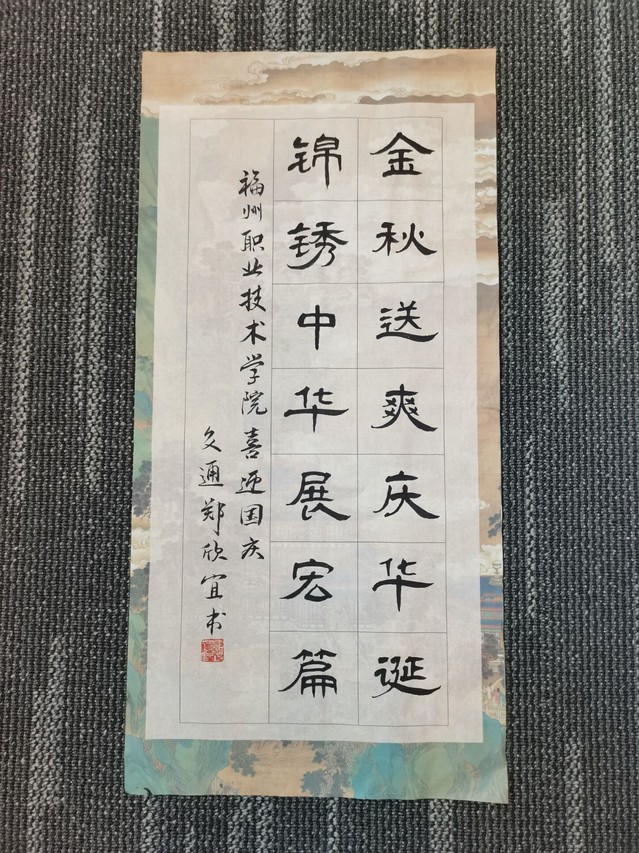 金秋送爽庆华诞
锦绣中华展宏篇
福州职业技术学院喜迎国庆
交通郑欣宜书